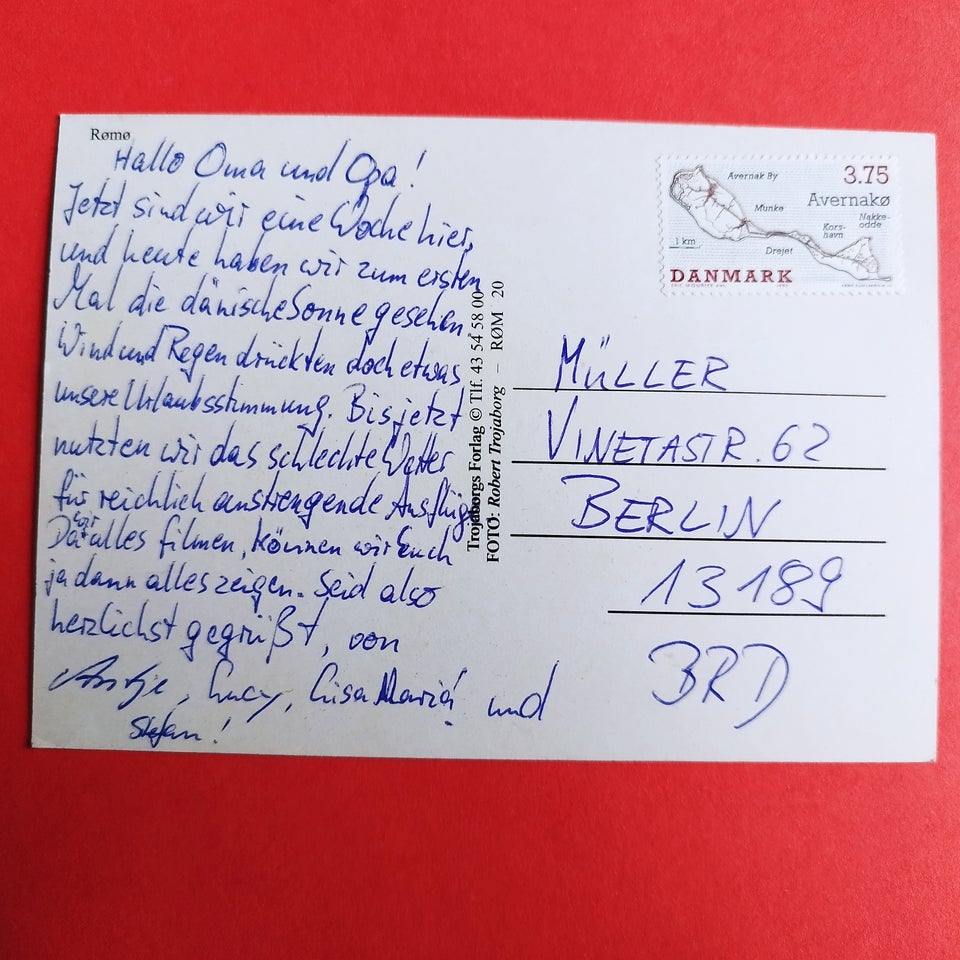 Rømø
Hallo Oma und Opa!
Jetzt sind wir eine Woche hier,
und heute haben wir zum ersten
Mal die dänische Sonne gesehen.
Wind und Regen drückten doch etwas
unsere Urlaubsstimmung. Bis jetzt
nutzten wir das schlechte Wetter
für reichlich anstrengende Ausflüge
Da wir alles filmen, können wir Euch
ja dann alles zeigen. Seid also
herzlichst gegrüßt, von
Antje, Lucy, Lisa Maria! und
Stefan!
Trojaborgs Forlag © Tlf. 43 54 58 00
FOTO: Robert Trojaborg – RØM 20
3.75
Avernakø
Avernak By
Munke
Kors-
havn
Nakke-
odde
Drejet
1 km
DANMARK
MÜLLER
VINETASTR. 62
BERLIN
13189
BRD